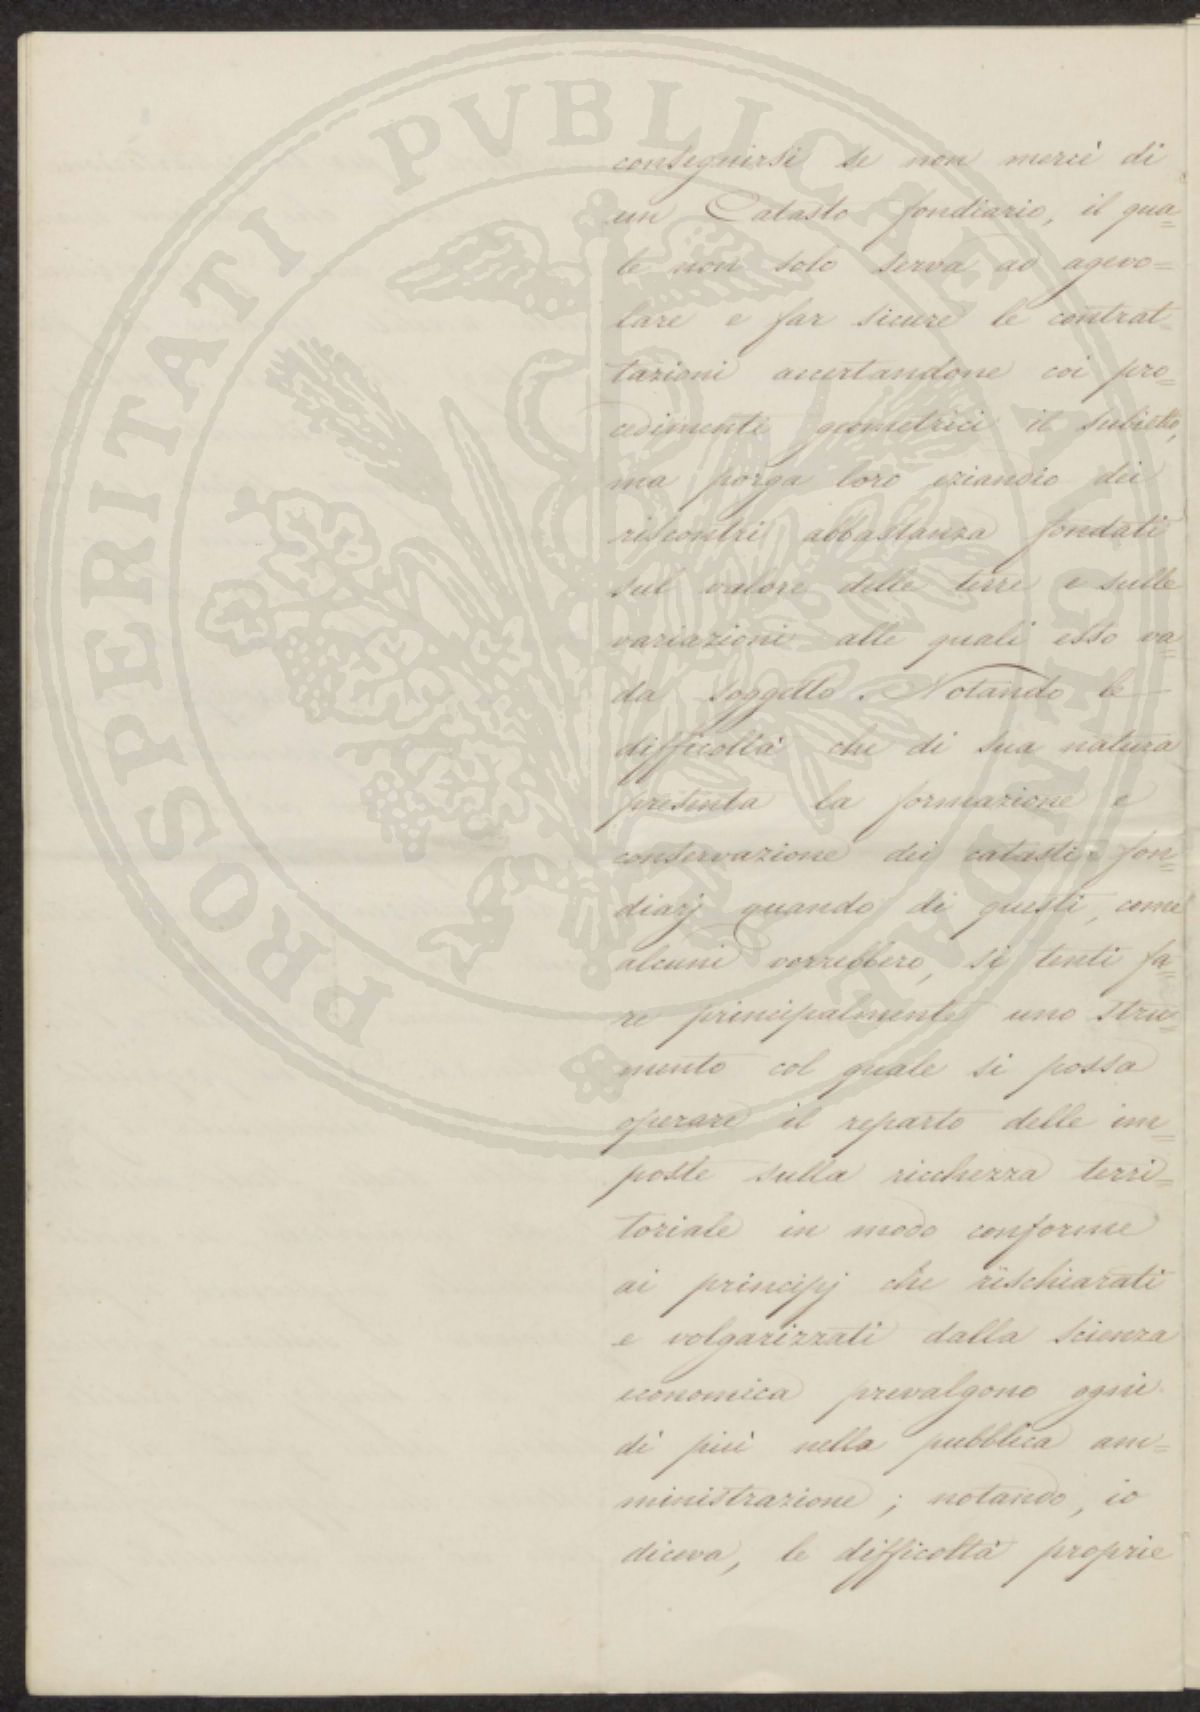 conseguirsi se non mercè di
un Catasto fondiario, il qua=
le non solo serva ad agevo=
lare e far sicure le contrat=
tazioni accertandone coi pro=
cedimenti geometrici il subietto,
ma porga loro eziandio dei
riscontri abbastanza fondati
sul valore delle terre e sulle
variazioni alle quali esso va=
da soggetto. Notando le
difficoltà che di sua natura
presenta la formazione e
conservazione dei catasti fon=
diarj quando di questi, come
alcuni vorrebbero, si tenti fa=
re principalmente uno stru=
mento col quale si possa
operare il reparto delle im=
poste sulla ricchezza terri=
toriale in modo conforme
ai principj che rischiarati
e volgarizzati dalla scienza
economica prevalgono ogni
dì più nella pubblica am=
ministrazione; notando, io
diceva, le difficoltà proprie
PROSPERITATI PVBLICAE AVGENDAE